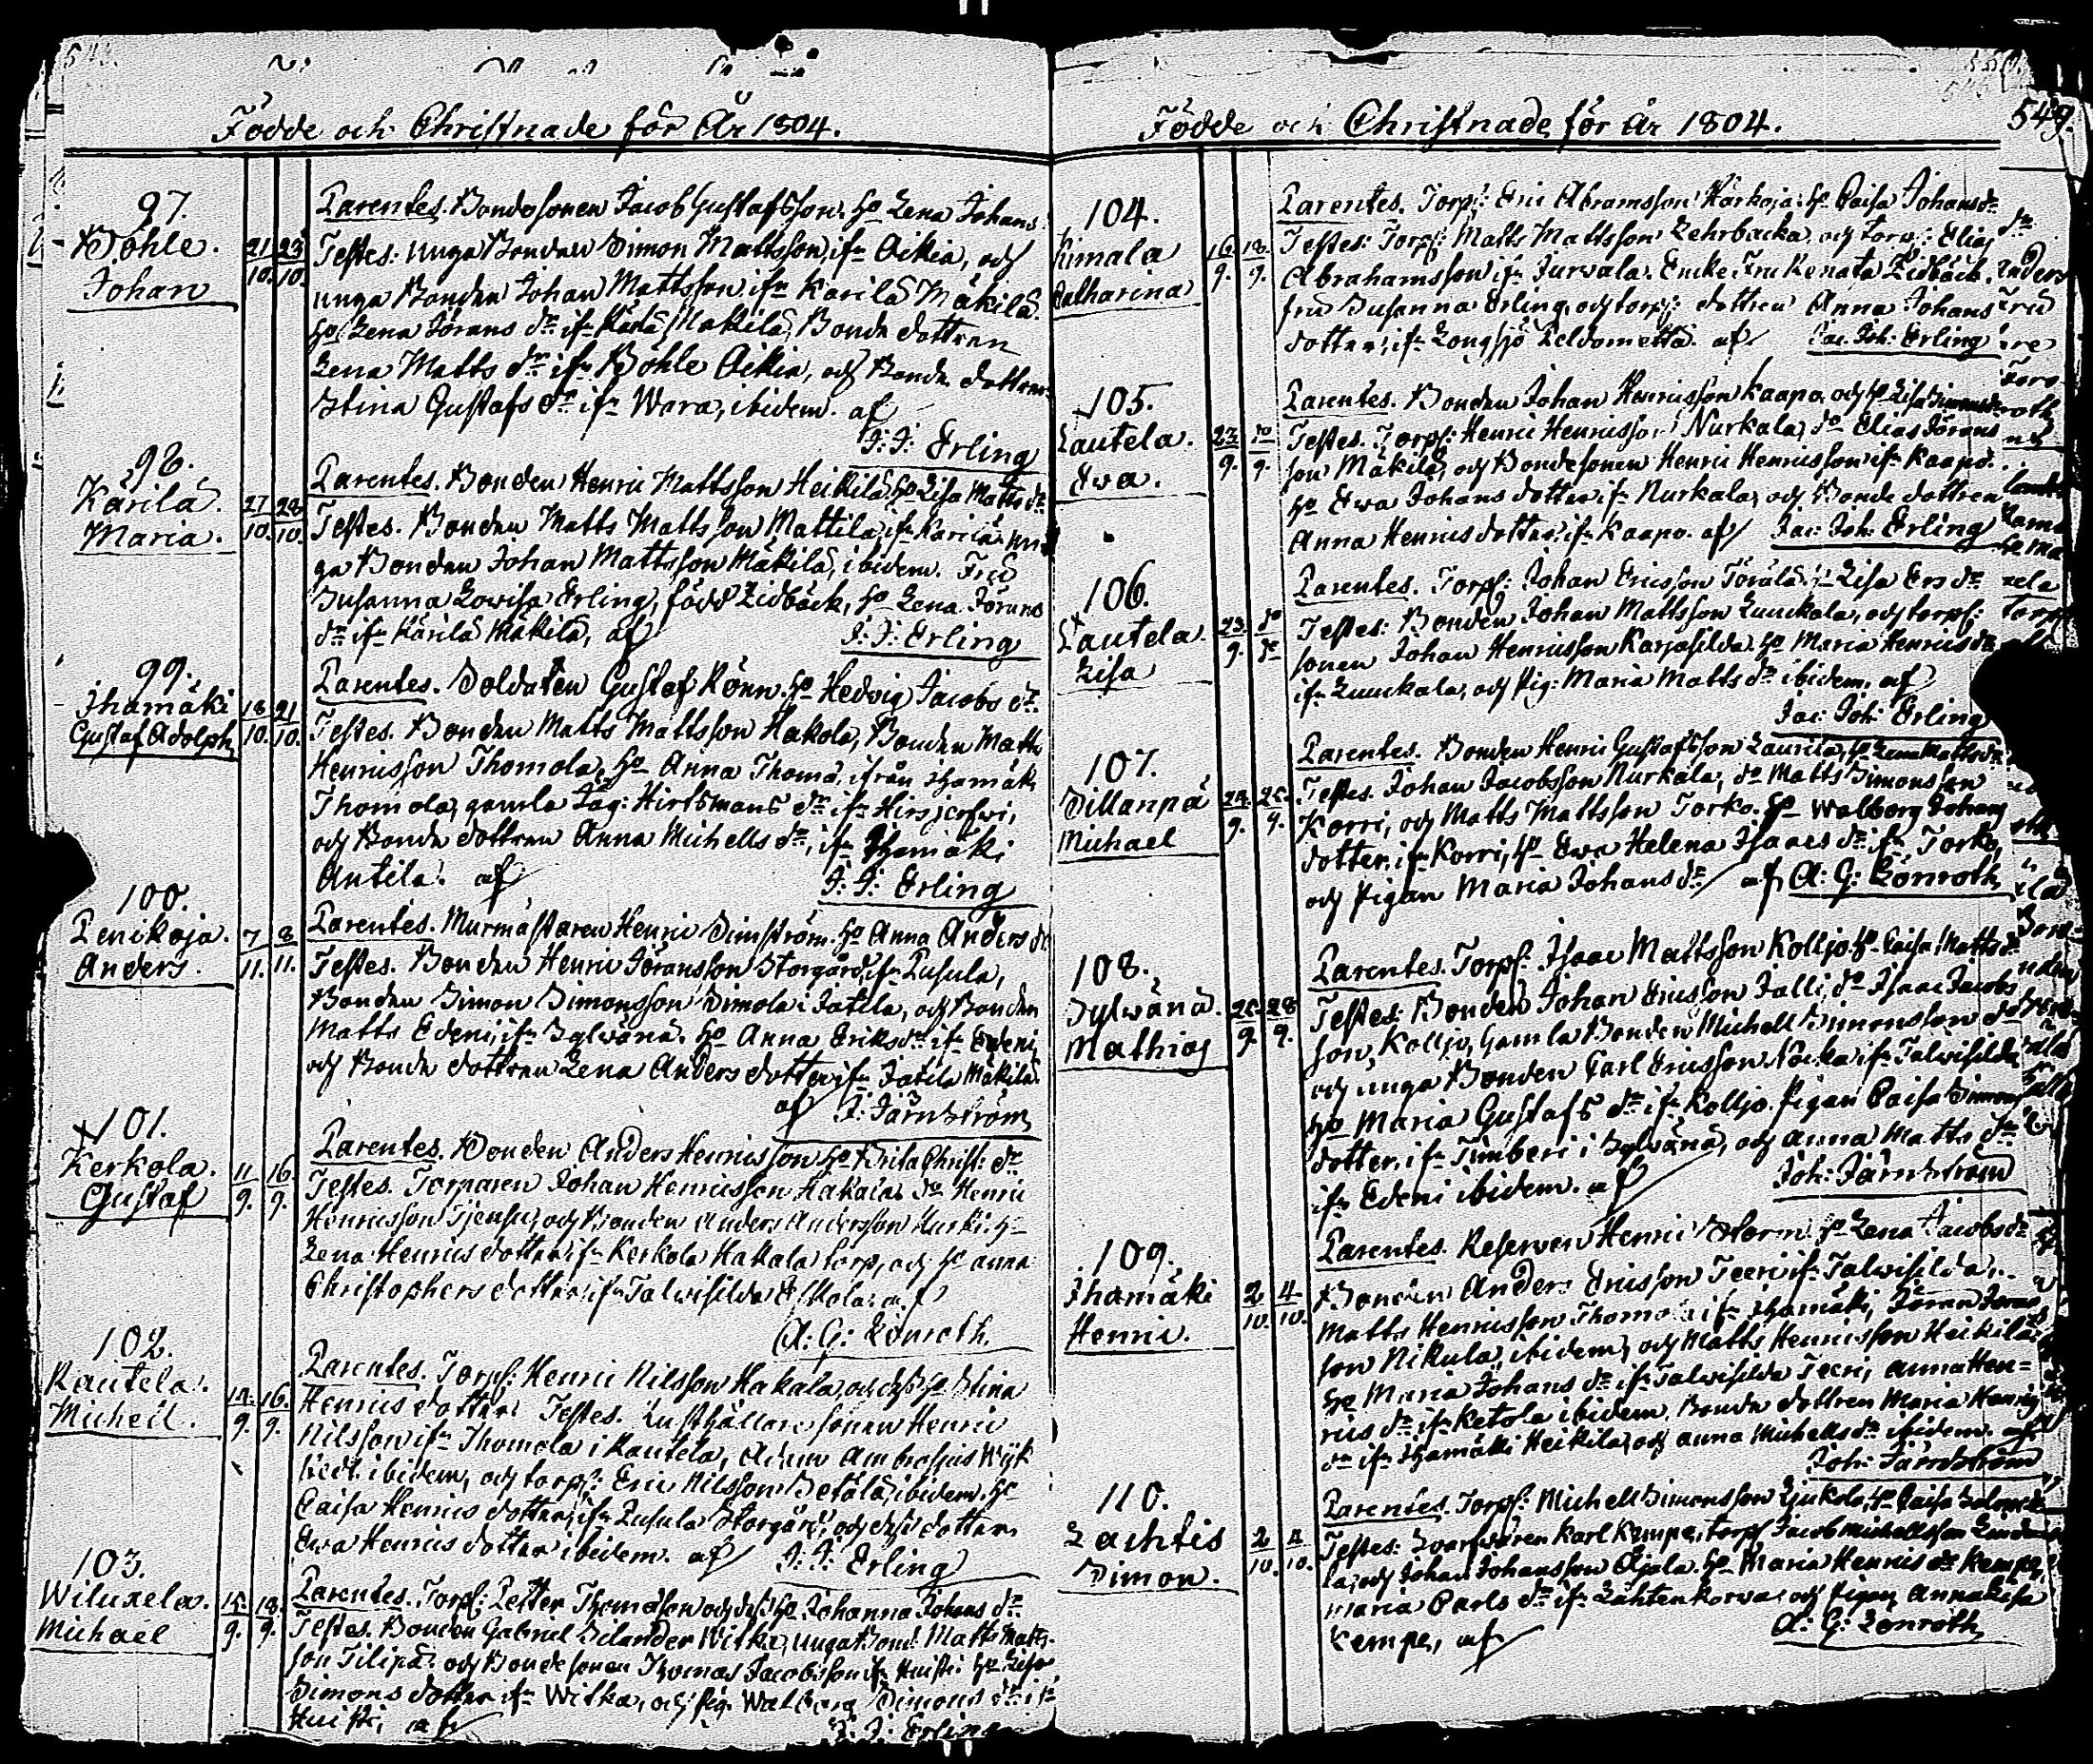 Födde och Christnade för År 1804.
97.
Böhle.
Johan
21 23
10. 10.
Parentes. Bondesonen Jacob Gustafsson. H° Lena Johans
Testes: unga Bonden Simon Mattsson, ifn Aikia, och
unga Bonden Johan Mattsson, ifn Karila Mäkilä.
H° Lena Jörans dr ifn Karila Mäkilä, Bonde dottren
Lena Matts dr ifn Böhle Aikia, och Bonde dottren
Stina Gustafs dr ifn Wara, ibidem. af
J: J: Erling
98.
Kärilä.
Maria.
27 28
10. 10.
Parentes. Bonden Henric Mattsson Heikilä, H° Lisa Matts dr
Testes. Bonden Matts Mattsson Mattila, ifn Karila. un
ga Bonden Johan Mattsson Mäkilä, ibidem. Fru
Susanna Lowisa Erling, född Lidbäck, H° Lena Jörans
dr ifn Kärilä Mäkilä, af J: J: Erling
99.
Jhamäki
Gustaf Adolph
18 21
10. 10.
Parentes. Soldaten Gustaf Rönn. H° Hedvig Jacobs dr.
Testes. Bonden Matts Mattsson Hakola, Bonden Matts
Henricsson Thomola, H° Anna Thoma, ifrån Jhamäki
Thomola, gamla Jäg: Hirtsmans dr ifn Hirsjerfwi,
och Bonde dottren Anna Michells dr, ifn Jhamäki
Antila. af J: J: Erling
100.
Penikoja.
Anders.
7 8
11. 11.
Parentes. Murmästaren Henric Simström. H° Anna Anders dr
Testes. Bonden Henric Jöransson Storgård, ifn Pusula,
Bonden Simon Simonsson Simola i Jatila, och Bonden
Matts Edeni, ifn Sylwänä. H° Anna Eriks dr ifn Edeni,
och Bonde dottren Lena Anders dotter ifn Jatila Mäkilä.
af J: Järnström
101.
Kerkola.
Gustaf
11 16
9. 9.
Parentes. Bonden Anders Henricsson H° Brita Christ: dr
Testes. Torparen Johan Henricsson Hakala, d° Henric
Henricsson, och Bonden Anders Andersson Kurki. H°
Lena Henrics dotter, ifn Kerkola Hakala torp, och H° Anna
Christophers dotter, ifn Talwisilda Eskola. af
A: G: Lönroth.
102.
Rautela.
Michell.
14. 16.
9. 9.
Parentes. Torp: Henric Nilsson Hakala, och dess H° Stina
Henrics dotter. Testes. Rusthållare sonen Henric
Nilsson ifn Thomola i Rautela, Ambrosius Wijk
stedt ibidem, och torp: Eric Nilsson Setälä, ibidem. H°
Caisa Henrics dotter, ifn Pusula Storgård, och dess dotter
Ewa Henrics dotter ibidem. af J: J: Erling
103.
Wiluxela.
Michael
15. 18.
9. 9.
Parentes. Torp: Petter Thomasson och dess H° Johanna Johans dr
Testes. Bonden Gabriel Silander Witka, unga Bond: Matts Matts-
son Tilipä. och Bondesonen Thomas Jacobsson ifn Huisti. H° Lisa
Simons dotter ifn Witka, och Pig: Walborg Simons dr ifn
Huisti, af J: J: Erling
549.
Födde och Christnade för År 1804.
104.
Kimala
Catharina
16. 18.
9. 9.
Parentes. Torp: Eric Abramsson Härkoja. H° Caisa Johans dr
Testes: Torp: Matts Mattsson Lehrbacka, och torp: Elias
Abrahamsson ifn Jurwala. Encke Fru Renata Lidbäck.
fru Susanna Erling, och torp: dottren Anna Johans
dotter, ifn Longsjö Peldometta. af Jac: Joh: Erling
105.
Lautela.
Ewa.
23 d°
9. 9.
Parentes. Bonden Johan Henricsson Kaapo, och H° Lisa Simons dr
Testes. Torp: Henric Henricsson Nurkala, d° Elias Jörans
son Mäkilä, och Bondesonen Henric Henricsson ifn Kaapo.
H° Ewa Johans dotter ifn Nurkala, och Bonde dottren
Anna Henrics dotter, ifn Kaapo. af Jac: Joh: Erling
106.
Lautela.
Lisa
23. d°
9. d°
Parentes. Torp: Johan Ericsson Törälä. H° Lisa Ers dr
Testes: Bonden Johan Mattsson Luuckala, och torp:
sonen Johan Henricsson Karjasilda. H° Maria Henrics dr
ifn Luuckala, och Pig: Maria Matts dr ibidem. af
Jac: Joh: Erling
107.
Sillanpä
Michael
24. 25.
9. 9.
Parentes. Bonden Henric Gustafsson Laurila, H° Lena Matts dr
Testes. Johan Jacobsson Nurkala, d° Matts Simonsson
Korri, och Matts Mattsson Torko. H° Walborg Johans
dotter, ifn Korri, H° Ewa Helena Isaacs dr ifn Torko,
och Pigan Maria Johans dr af A: G: Lönroth
108.
Sylwänä.
Mathias
25. 28
9. 9.
Parentes. Torp: Isaac Mattsson Kolljo. H° Caisa Matts dr
Testes: Bonden Johan Ericsson Jalli, d° Isaac Jacobs
son, Kolljo, Gamla Bonden Michell Simonsson
och unga Bonden Carl Ericsson Nocka ifn Talwisilda
H° Maria Gustafs dr ifn Kolljo. Pigan Caisa Simons
dotter, ifn Timberi i Sylwänä, och Anna Matts dr
ifn Edeni ibidem. af Joh: Järnström
109.
Jhamäki
Henric.
2 4
10. 10.
Parentes. Reserven Henric Storm. H° Lena Jacobs dr
Bonden Anders Ericsson Teeri ifn Talwisilda,
Matts Henricsson Thomola ifn Jhamäki, Jöran Jörans
son Nikula, ibidem, och Matts Henricsson Heikilä.
H° Maria Johans dr ifn Talwisilda Teeri, Anna Hen=
rics dr ifn Ketola ibidem. Bonde dottren Maria Henrics
dr ifn Jhamäki Heikilä, och Anna Michells dr ibidem. af
Joh: Järnström
110.
Lachtis
Simon.
2 4
10. 10.
Parentes. Torp: Michell Simonsson Liukola, H° Caisa
Testes: Swarfwaren Karl Kempe, torp: Jacob Michellsson
la, och Johan Johansson Ojala. H° Maria Henrics dr Kempe,
Maria Carls dr ifn Lähtenkorwa, och Pigan Anna Lisa
Kempe, af A: G: Lönroth